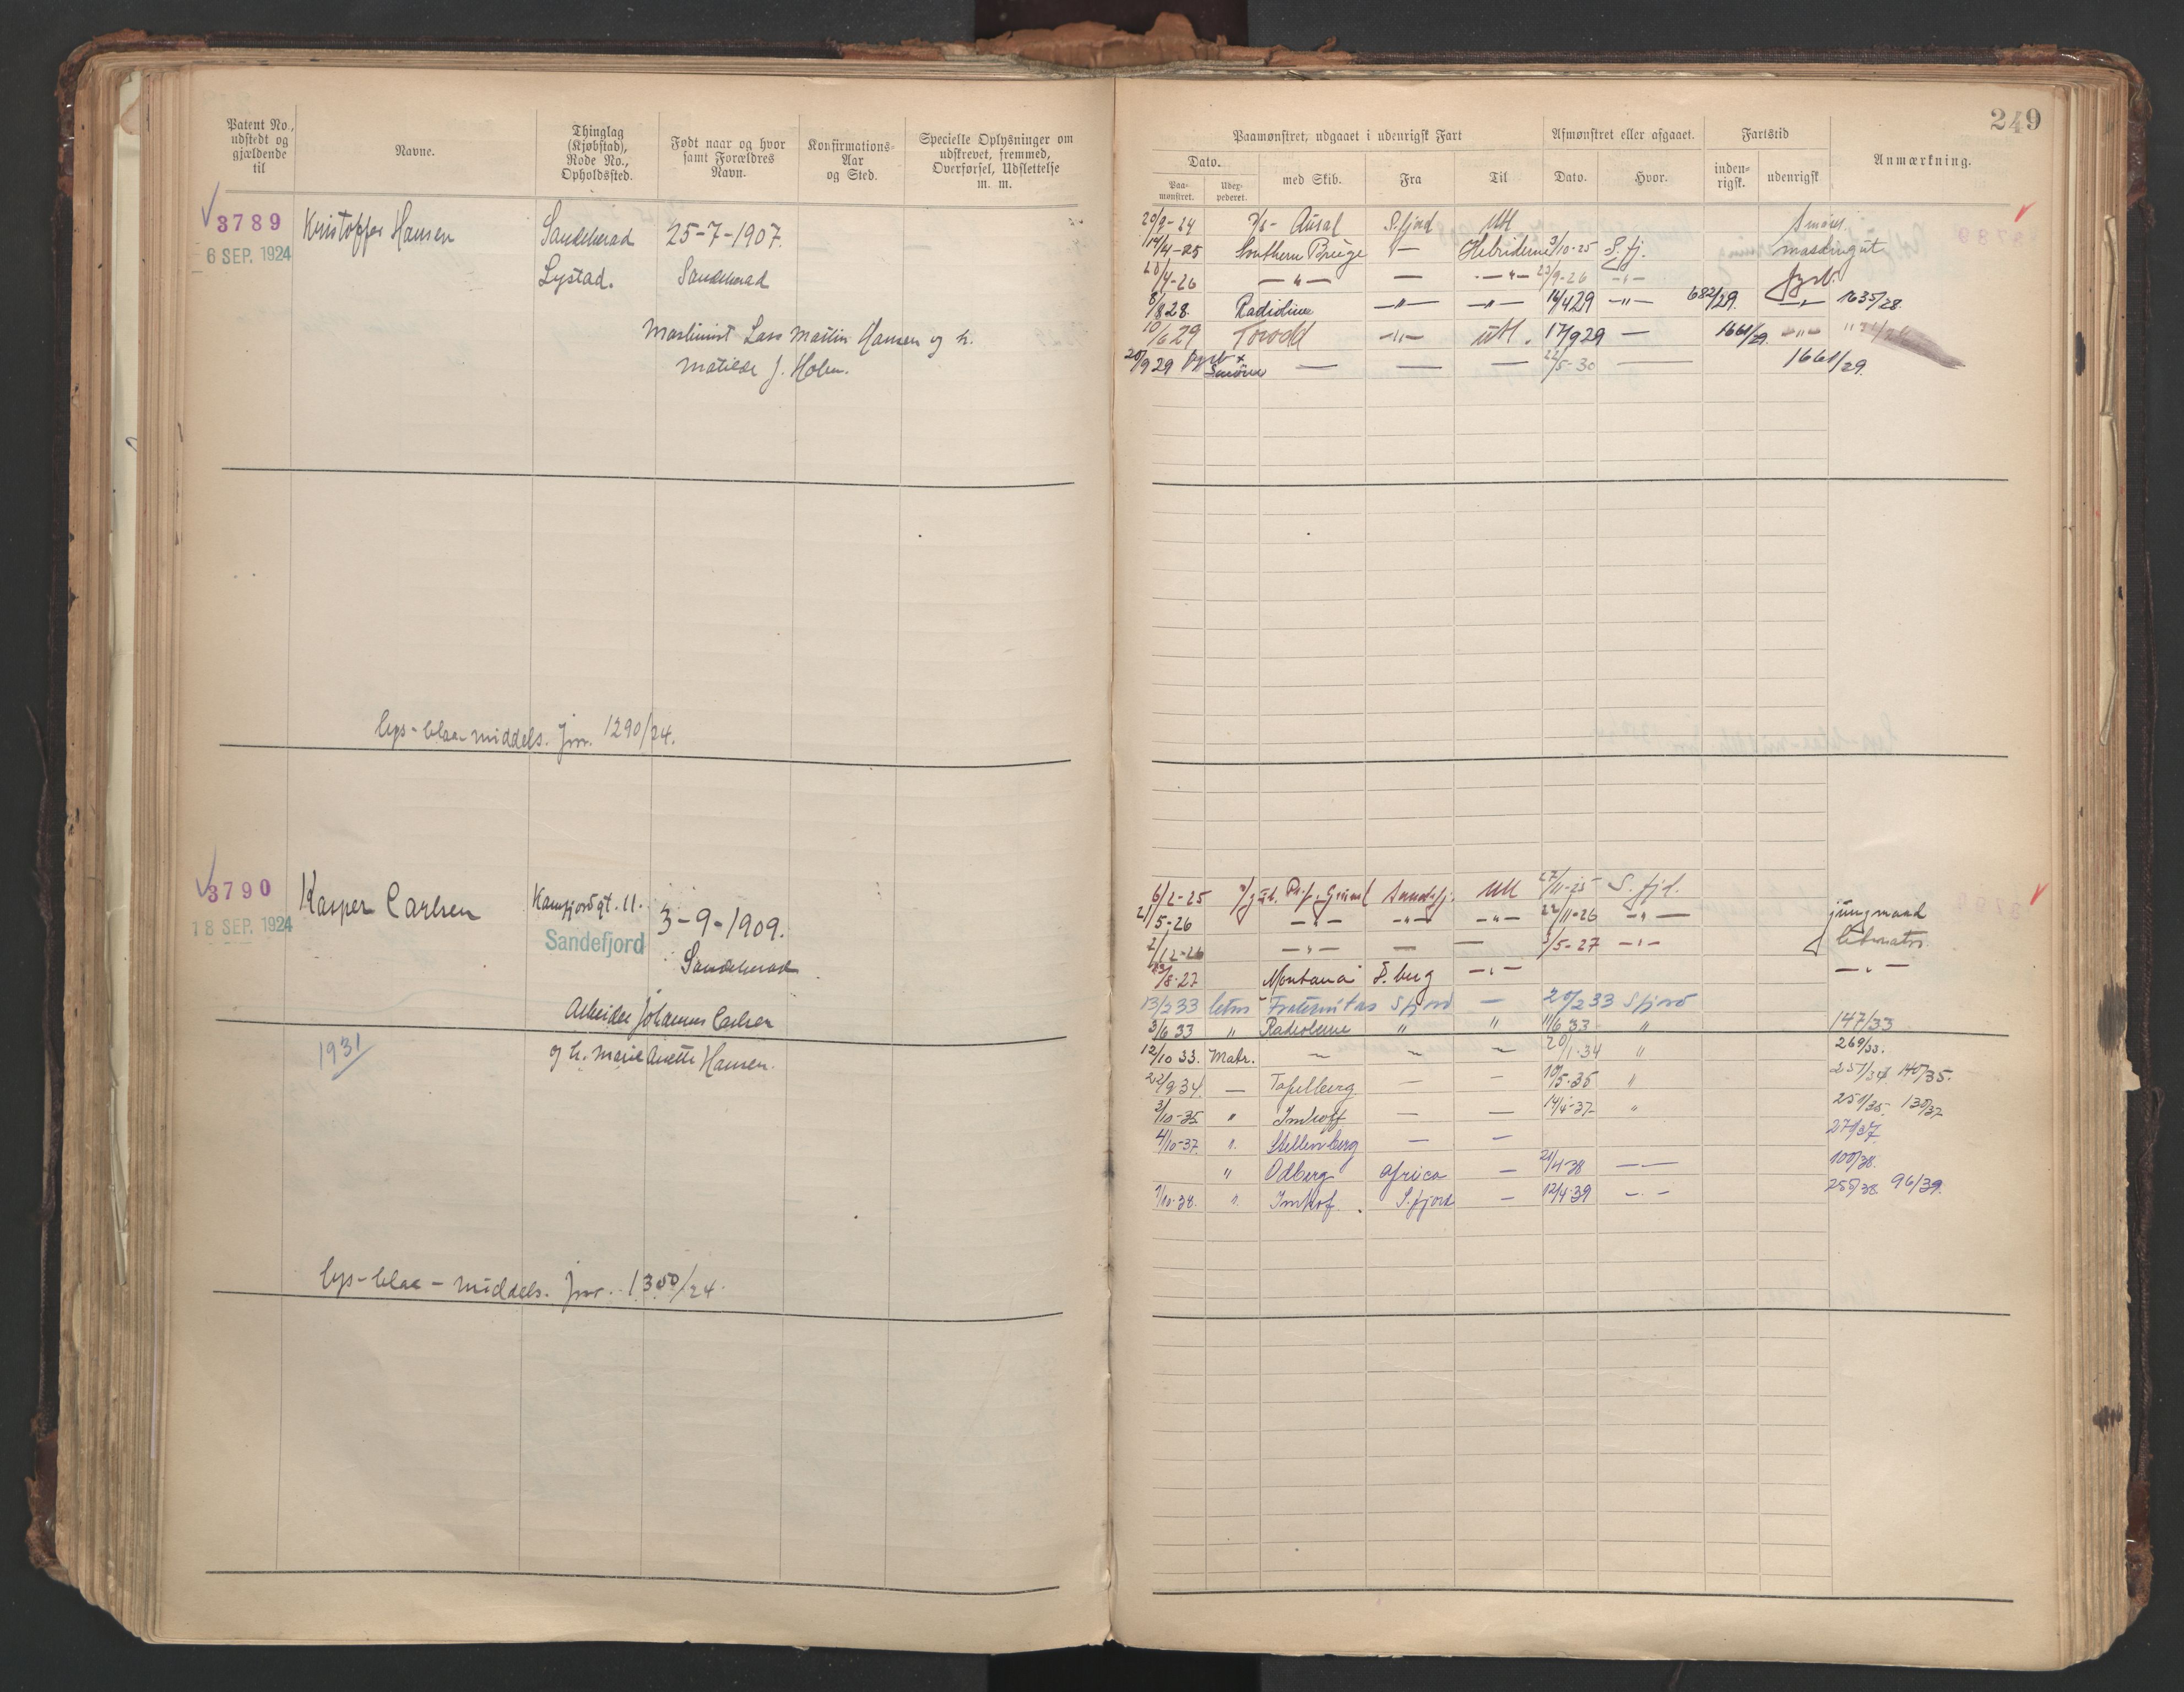 Patent No., udstedt og gjældende til
Navne.
Thinglag (Kjøbstad), Rode No., Opholdssted.
Født naar og hvor samt Forældres Navn.
Konfirmations-Aar og Sted.
Specielle Oplysninger om udskrevet, fremmed, Overførsel, Udslettelse m. m.
3789
6 SEP. 1924
Kristoffer Hansen
Sandeherad
25-7-1907.
Lystad.
Sandeherad
Maskinist Lars Martin Hansen og h.
Matilde J. Holm.
lys-blaa middels. Jnr. 1290/24.
3790
18 SEP. 1924
Kasper Carlsen
Kamfjordgt. 11.
Sandefjord
3-9-1909.
Sandeherad
Arbeider Johannes Carlsen
og h. Marie Anette Hansen.
1931
lys-blaa-middels. Jnr. 1350/24.
249
Paamønstret, udgaaet i udenrigsk Fart
Afmønstret eller afgaaet.
Fartstid
Anmærkning.
Dato.
Paa-mønstret.
Udex-pederet.
med Skib.
Fra
Til
Dato.
Hvor.
inden-rigsk.
udenrigsk
20/9-24 Aural S.fjord
14/4-25 Southern Hebriderne 3/10-25 S.fj. maskingut
/4-26 23/9-26 fyrb.
8/8 28. 14/4 29 682/29. 1635/28.
10/6 29 Torodd 17/9 29 1661/29.
20/9 29 fyrb + Smører 22/5-30 1661/29.
6/2-25 27/11-25 S. fjd.
2/5-26 22/11-26 jungmand
2/12-26 /5-27
/8-27 Montana
13/2 33 Fraternitas Sfjord 20/2 33 Sfjord
3/6 33 " " " 11/6 33 " 147/33
12/10 33. Matr. 20/1-34 " 269/33.
22/9 34. Tafelberg 10/5-35 " 257/34 140/35.
3/10-35 " Imhoff 14/4-37 " 251/35. 130/37
4/10-37 ". Stellenberg 279/37
" Odberg Africa 21/4 38 100/38.
/10-38. ". Imhof. S.fjord 12/4-39 255/38 96/39.